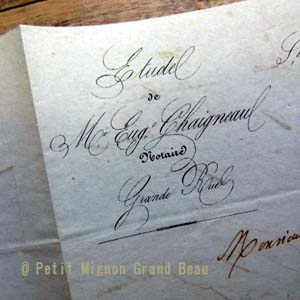 Etude
de
Me Eug. Chaigneau
Notaire
Grande Rue
Monsieur
@ Petit Mignon Grand Beau